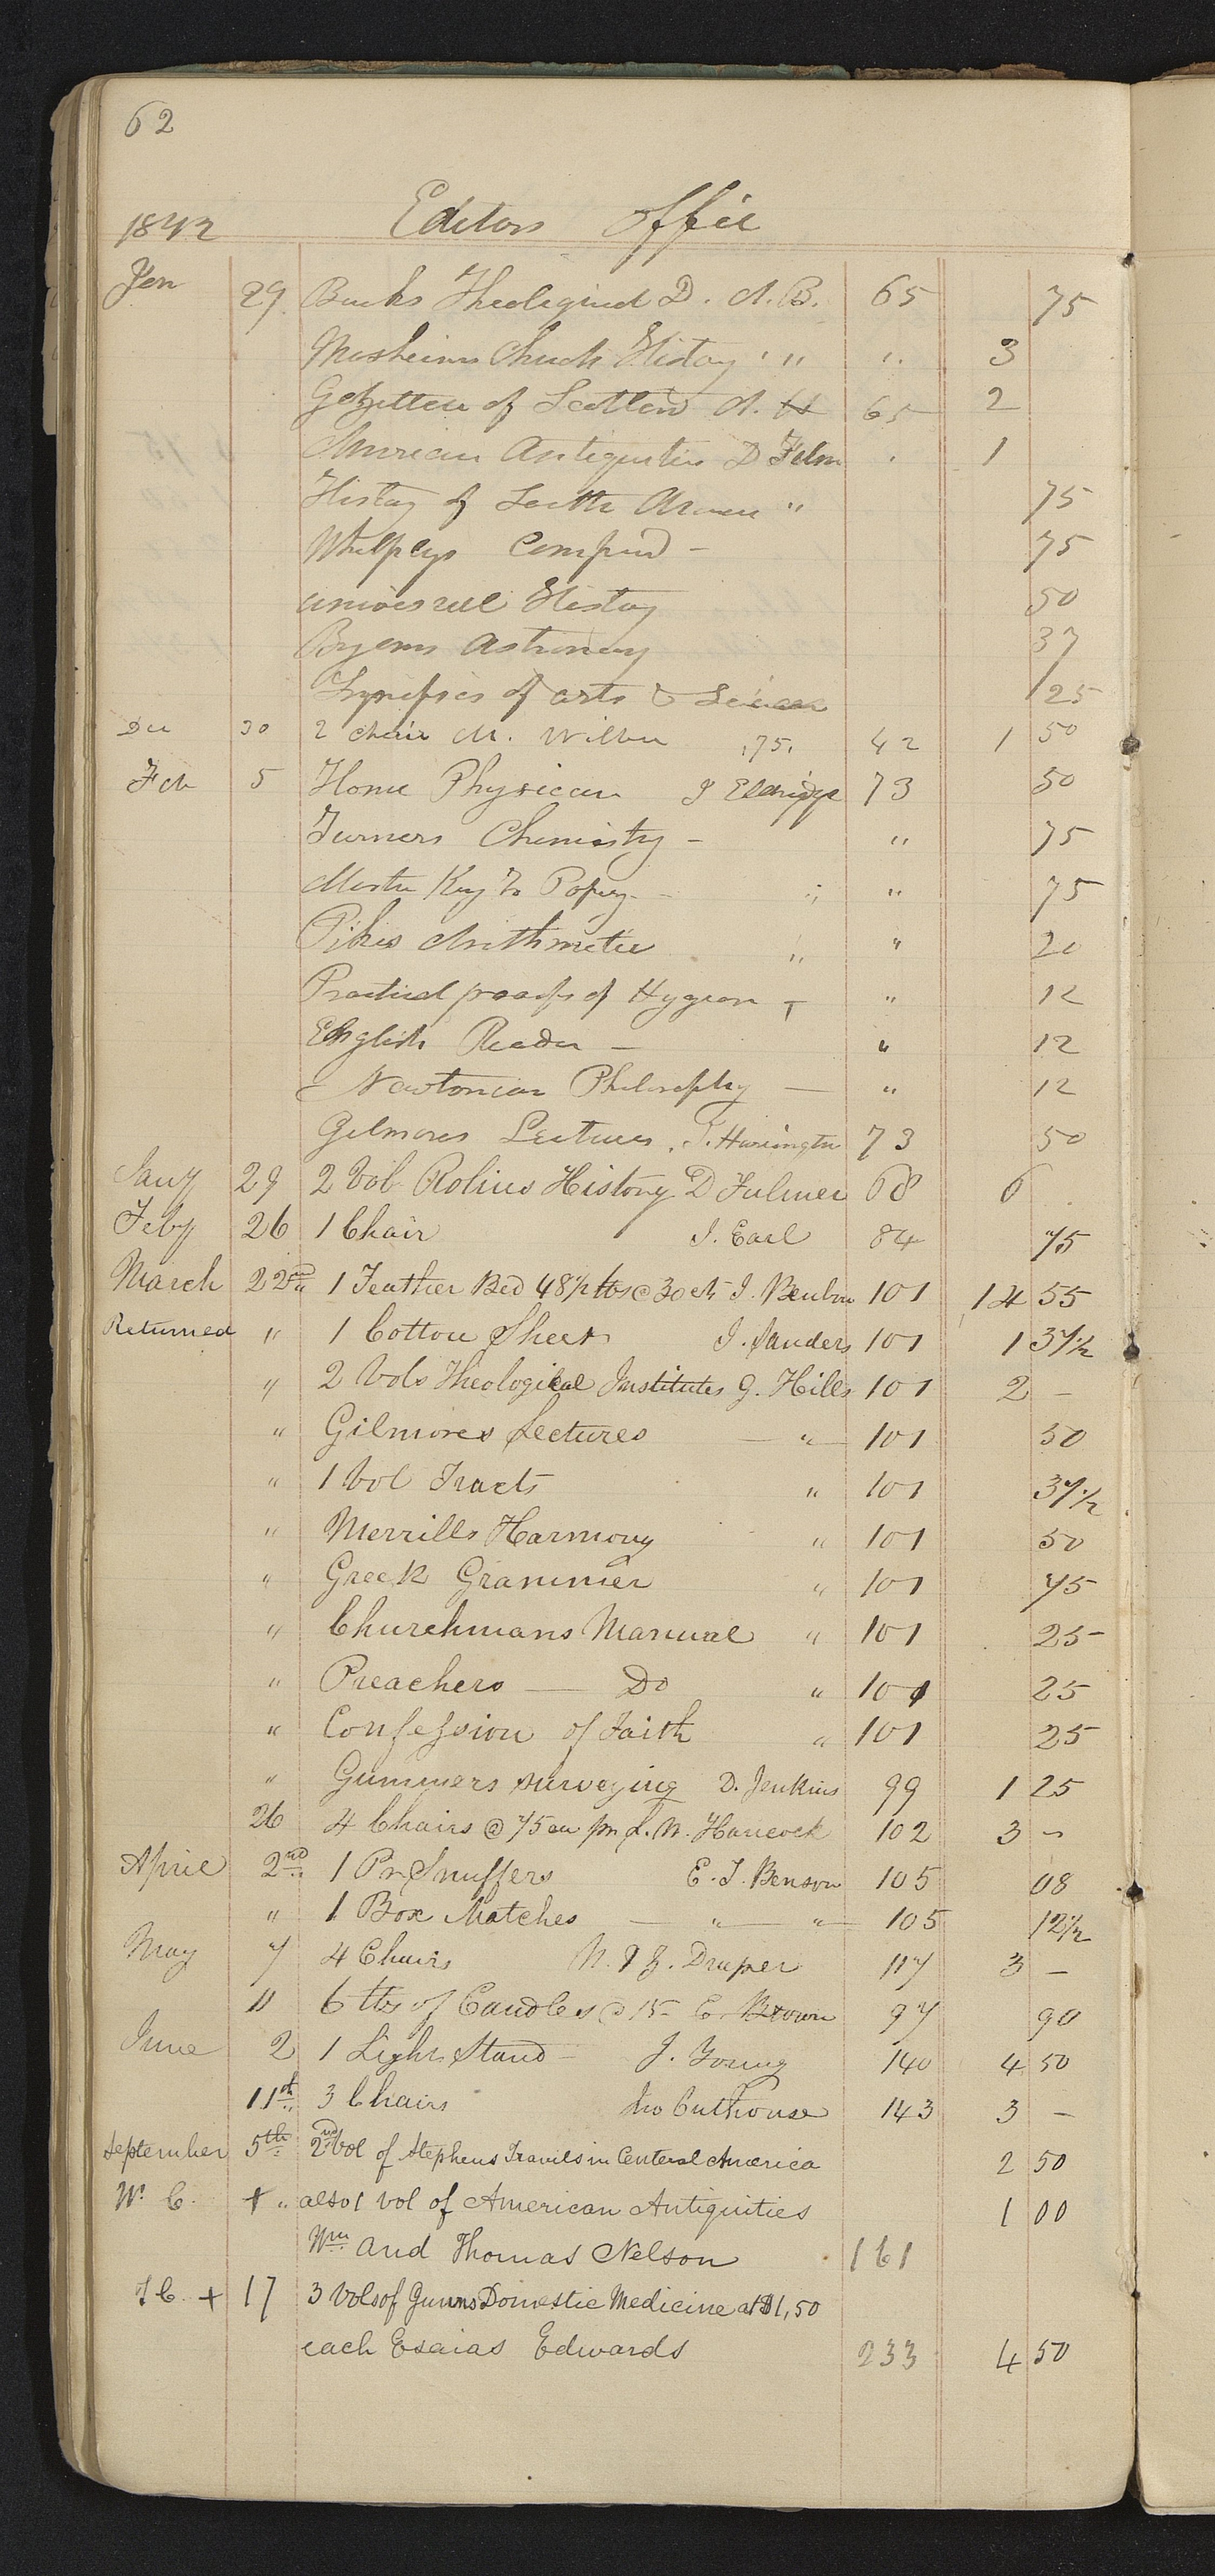 62
1842 Editors Office
Jan 29 Bucks Theological D. A. B. 65 75
Mosheims Church History " " " 3
Gazetteer of Scotland A. 65 2
American Antiquities D Fulm 1
History of South Amer " 75
Whelpleys Compend - 75
universal History 50
Ryans Astronomy 37
Synopsis of arts & 25
Dec 30 2 chair M. Wilber .75. 42 1 50
Feb 5 Home Physician J Eldridge 73 50
Turners Chemistry - " 75
Master Key to Popery - " " 75
Pikes Arithmetic " " 20
Practical proofs of Hygean - " 12
English Reader - " 12
Newtonian Philosophy - " 12
Gilmores Lectures. T. Harrington 73 50
Jany 29 2 Vol Rolins History D Fulmer 68 6
Feby 26 1 Chair J. Earl 84 75
March 22nd 1 Feather Bed 48½ lbs @ 30 cts J. Benbow 101 14 55
Returned " 1 Cotton Sheet J. Sanders 101 1 37½
" 2 Vols Theological Institutes G. Hills 101 2 -
" Gilmores Lectures - " - 101 50
" 1 Vol Tracts " 101 37½
" Merrills Harmony " 101 50
" Greek Grammer " 101 75
" Churchmans Manual " 101 25
" Preachers - Do " 101 25
" Confession of Faith " 101 25
" Gummers surveying D. Jenkins 99 1 25
26 4 Chairs @ 75 ea pr L. N. Hancock 102 3 -
April 2nd 1 Pr Snuffers E. T. Benson 105 08
" 1 Box Matches - " - " - 105 12½
May 7 4 Chairs W. & Z. Draper 117 3 -
11 6 lbs of Candles @ 15 E. Brown 97 90
June 2 1 Light Stand - J. Young 140 4 50
11th 3 Chairs Jno Outhouse 143 3 -
September 5th 2nd Vol of Stephens Travils in Centeral America 2 50
W. C. + " also 1 vol of American Antiquities 1 00
Wm and Thomas Nelson 161
T C. + 17 3 Vols of Gunns Domestic Medicine at $1,50
each Esaias Edwards 233 4 50